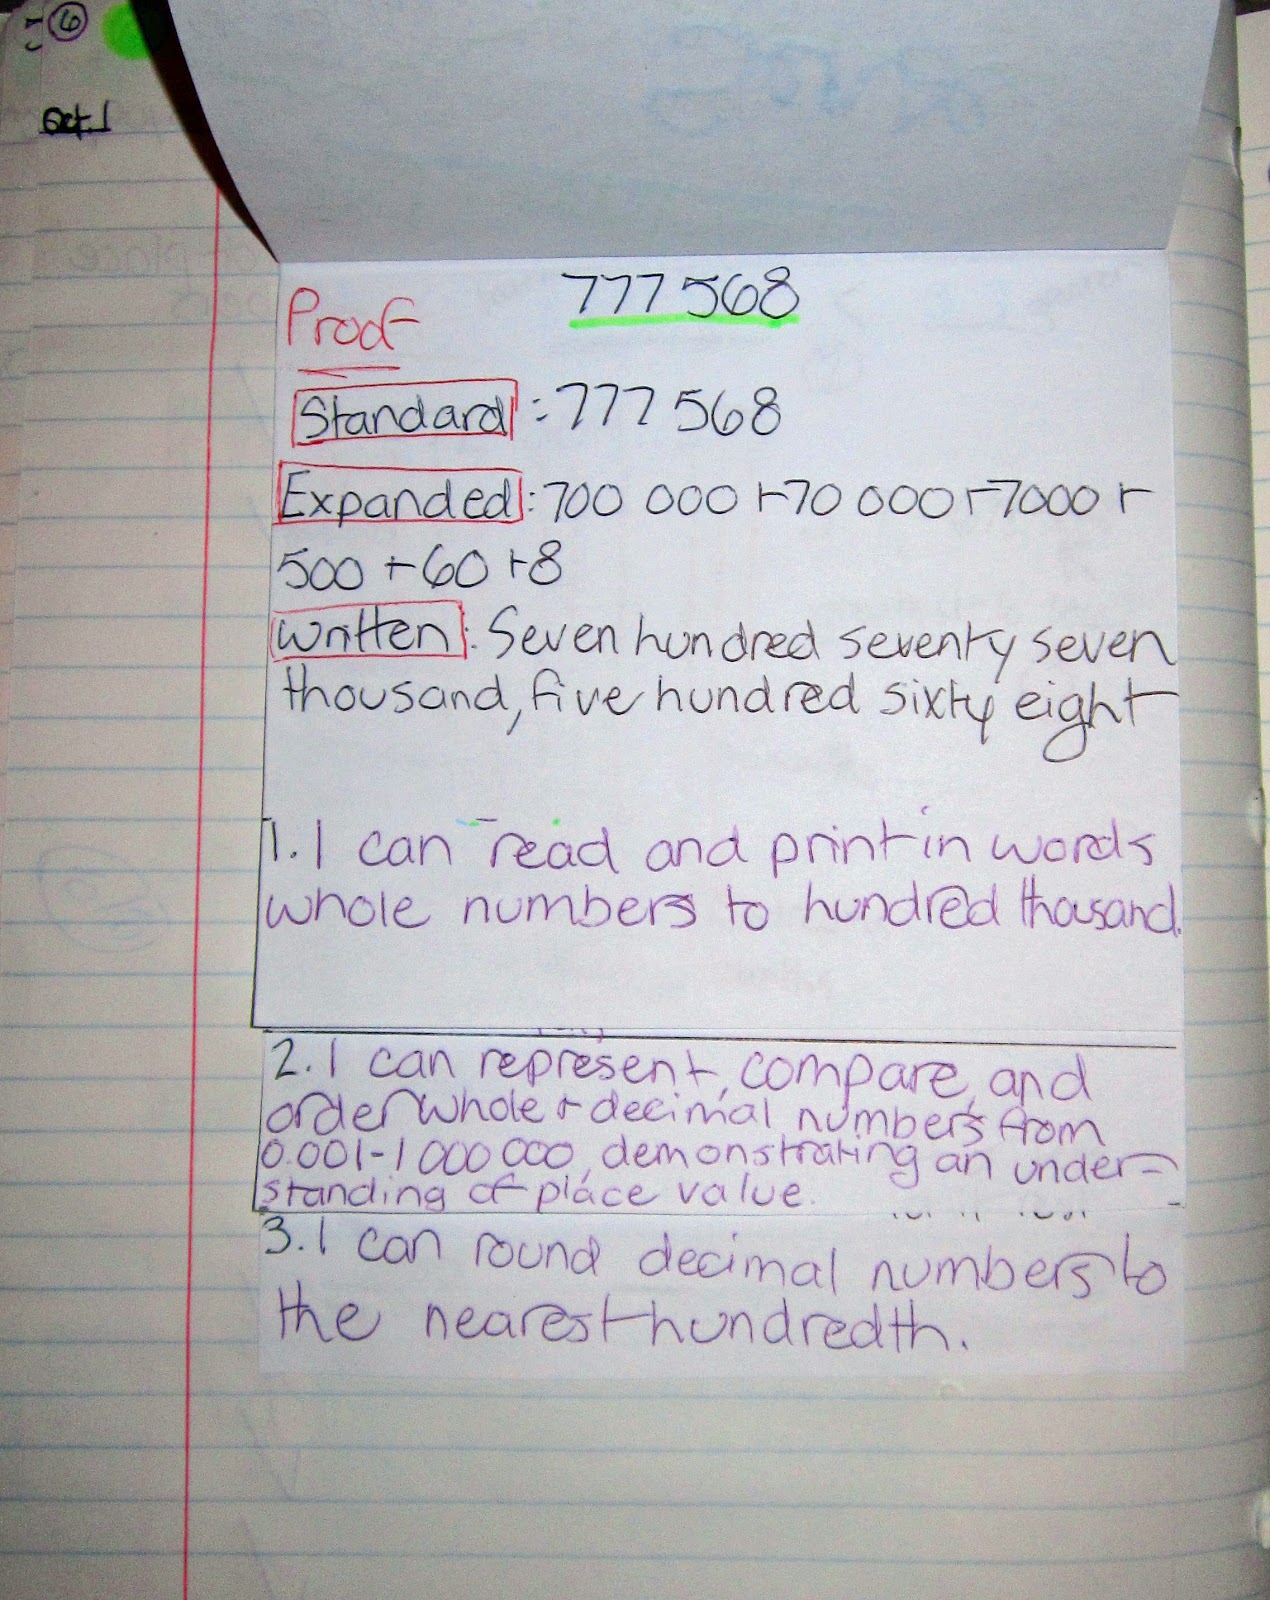 6
Oct. 1
777 568
Proof
Standard : 777 568
Expanded : 700 000 + 70 000 + 7000 +
500 + 60 + 8
Written : Seven hundred seventy seven
thousand, five hundred sixty eight
1. I can read and print in words
whole numbers to hundred thousand.
2. I can represent, compare, and
order whole + decimal numbers from
0.001-1 000 000, demonstrating an under-
standing of place value.
3. I can round decimal numbers to
the nearest hundredth.